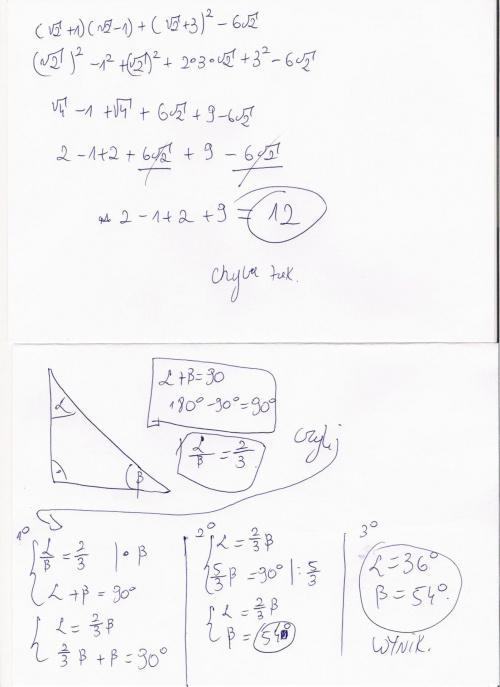 (√2+1)(√2-1)+(√2+3)² - 6√2
(√2)² - 1² + (√2)² + 2·3·√2 + 3² - 6√2
√4 - 1 + √4 + 6√2 + 9 - 6√2
2 - 1 + 2 + 6√2 + 9 - 6√2
2 - 1 + 2 + 9 = 12
chyba tak.
α
β
α + β = 90
180° - 90° = 90°
α/β = 2/3.
czyli
1°
α/β = 2/3 | · β
α + β = 90°
α = 2/3 β
2/3 β + β = 90°
2°
α = 2/3 β
5/3 β = 90° | : 5/3
α = 2/3 β
β = 54°
3°
α = 36°
β = 54°.
WYNIK.